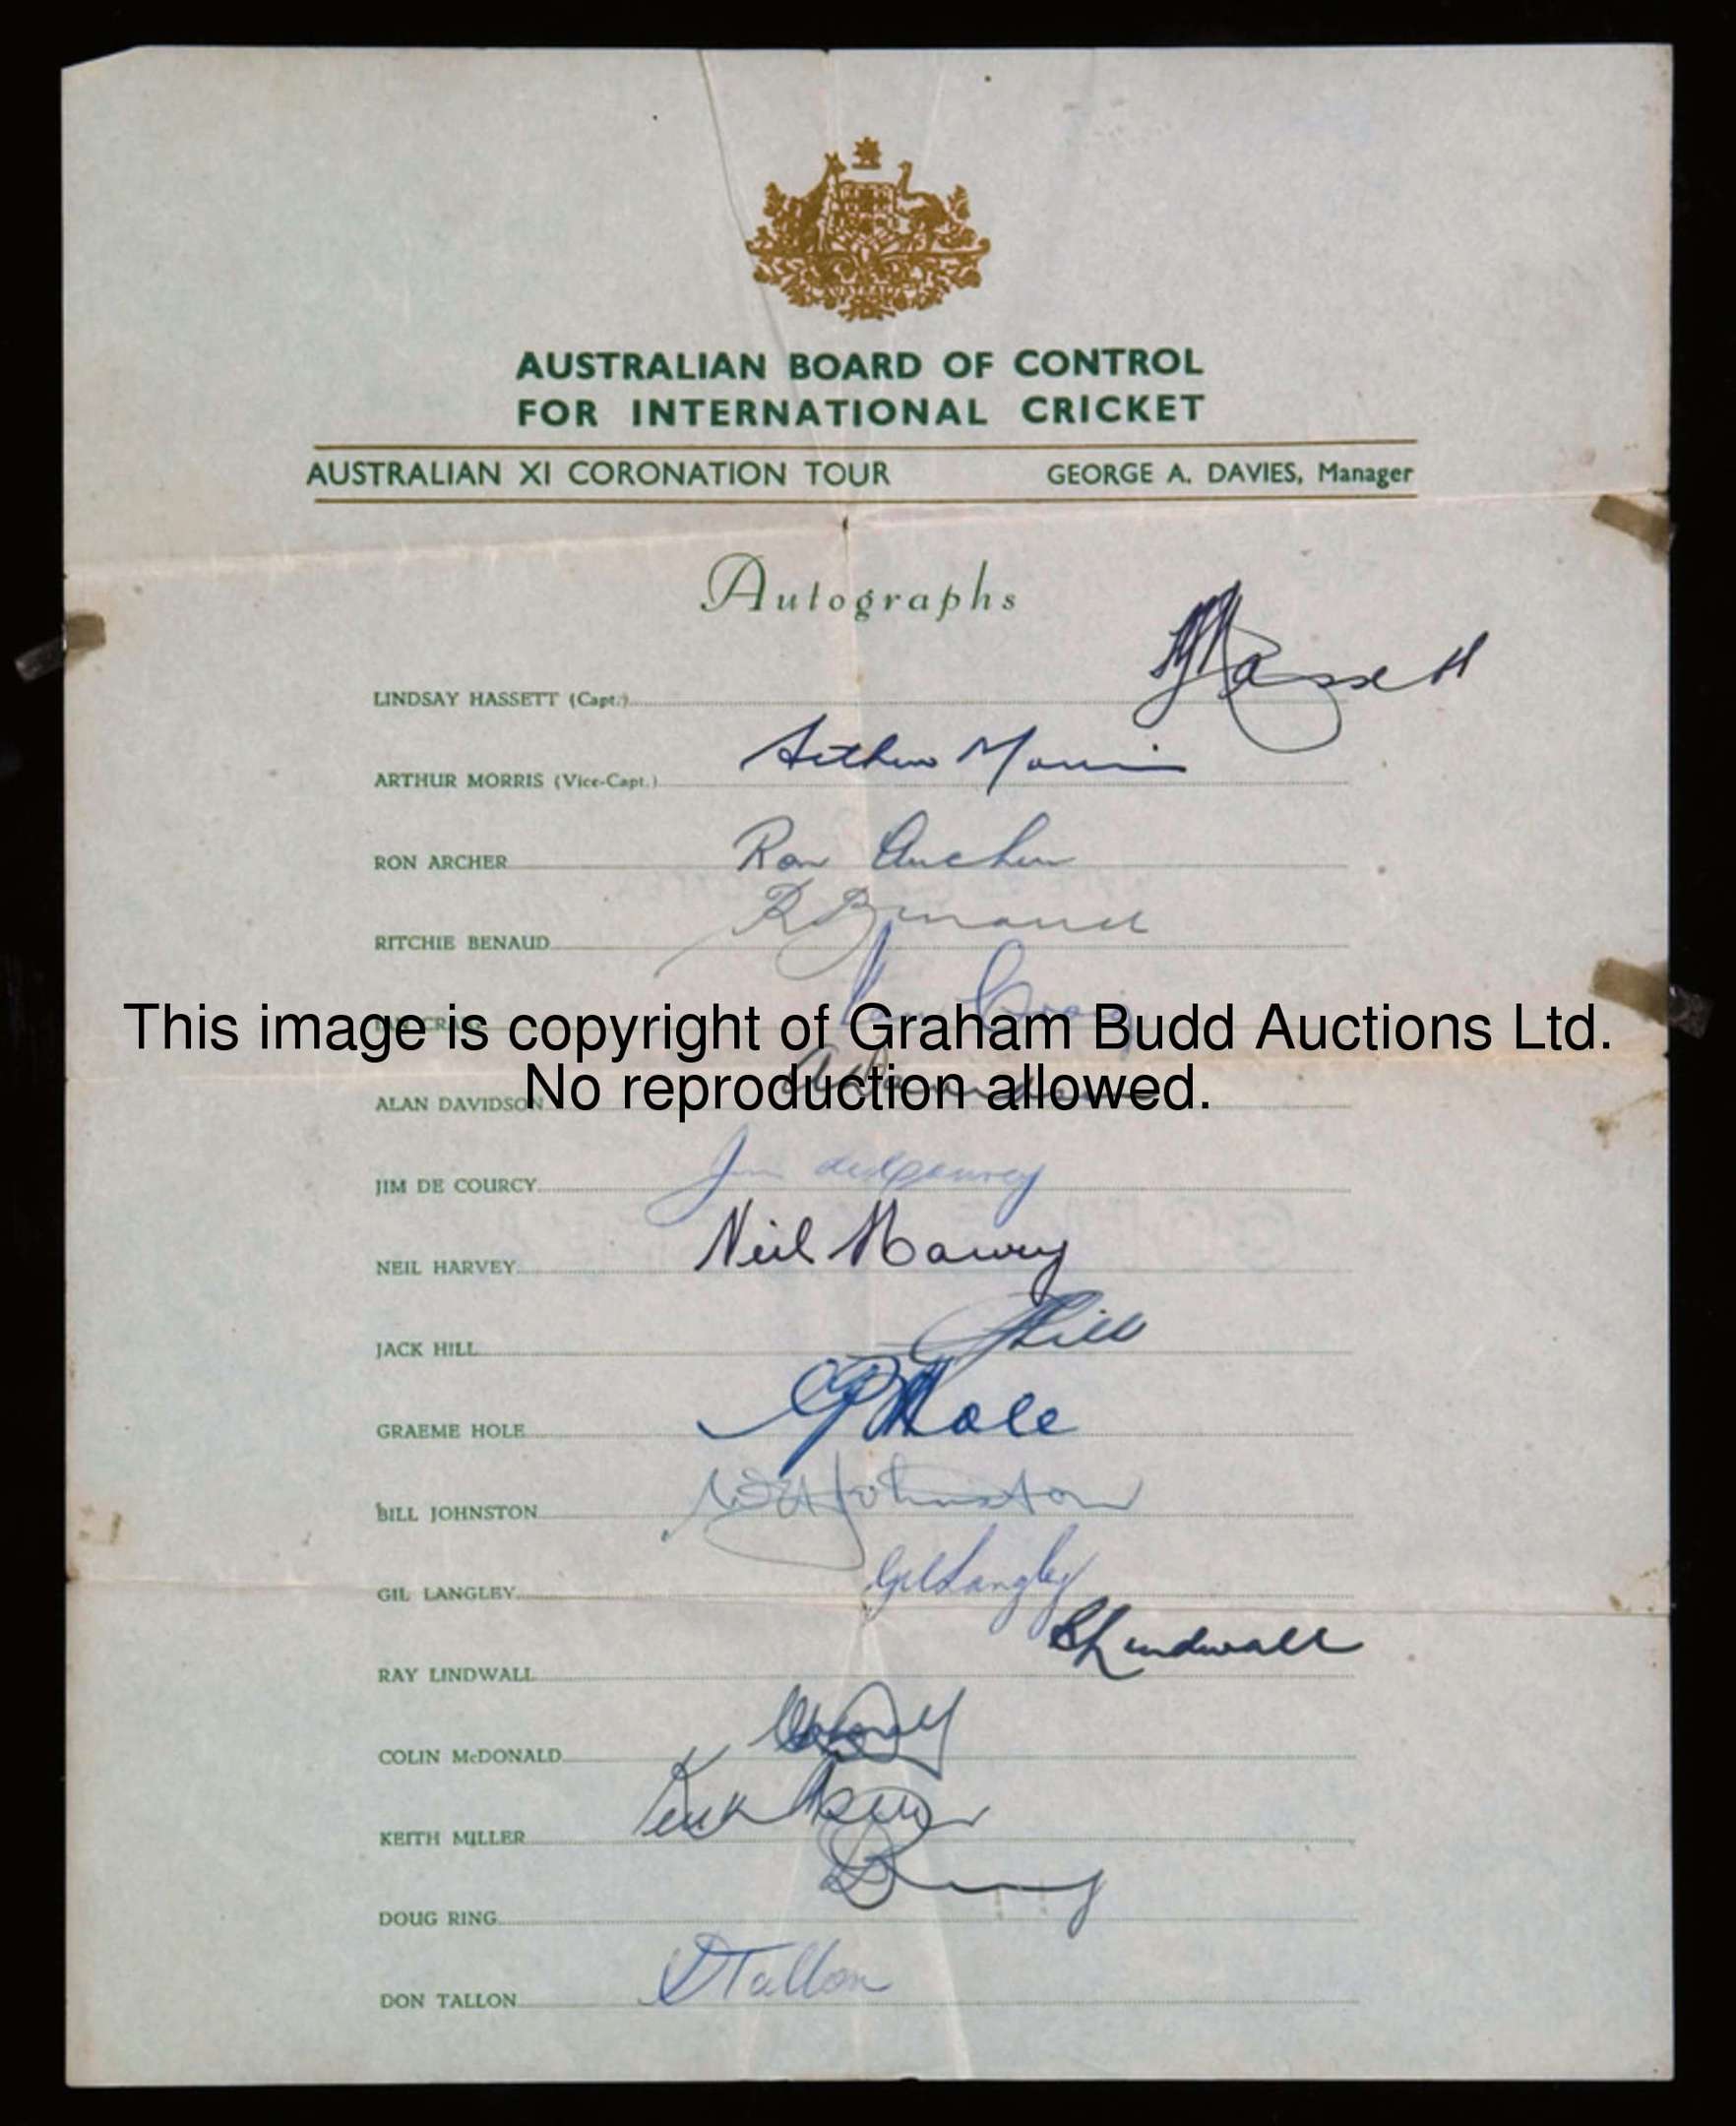 AUSTRALIAN BOARD OF CONTROL
FOR INTERNATIONAL CRICKET
AUSTRALIAN XI CORONATION TOUR GEORGE A. DAVIES, Manager
Autographs
LINDSAY HASSETT (Capt.) Hassett
ARTHUR MORRIS (Vice-Capt.) Arthur Morris
RON ARCHER Ron Archer
RITCHIE BENAUD R Benaud
IAN CRAIG Ian Craig
This image is copyright of Graham Budd Auctions Ltd.
No reproduction allowed.
ALAN DAVIDSON A Davidson
JIM DE COURCY Jim de Courcy
NEIL HARVEY Neil Harvey
JACK HILL J Hill
GRAEME HOLE G Hole
BILL JOHNSTON W A Johnston
GIL LANGLEY Gil Langley
RAY LINDWALL R Lindwall
COLIN McDONALD
KEITH MILLER Keith Miller
DOUG RING D Ring
DON TALLON D Tallon